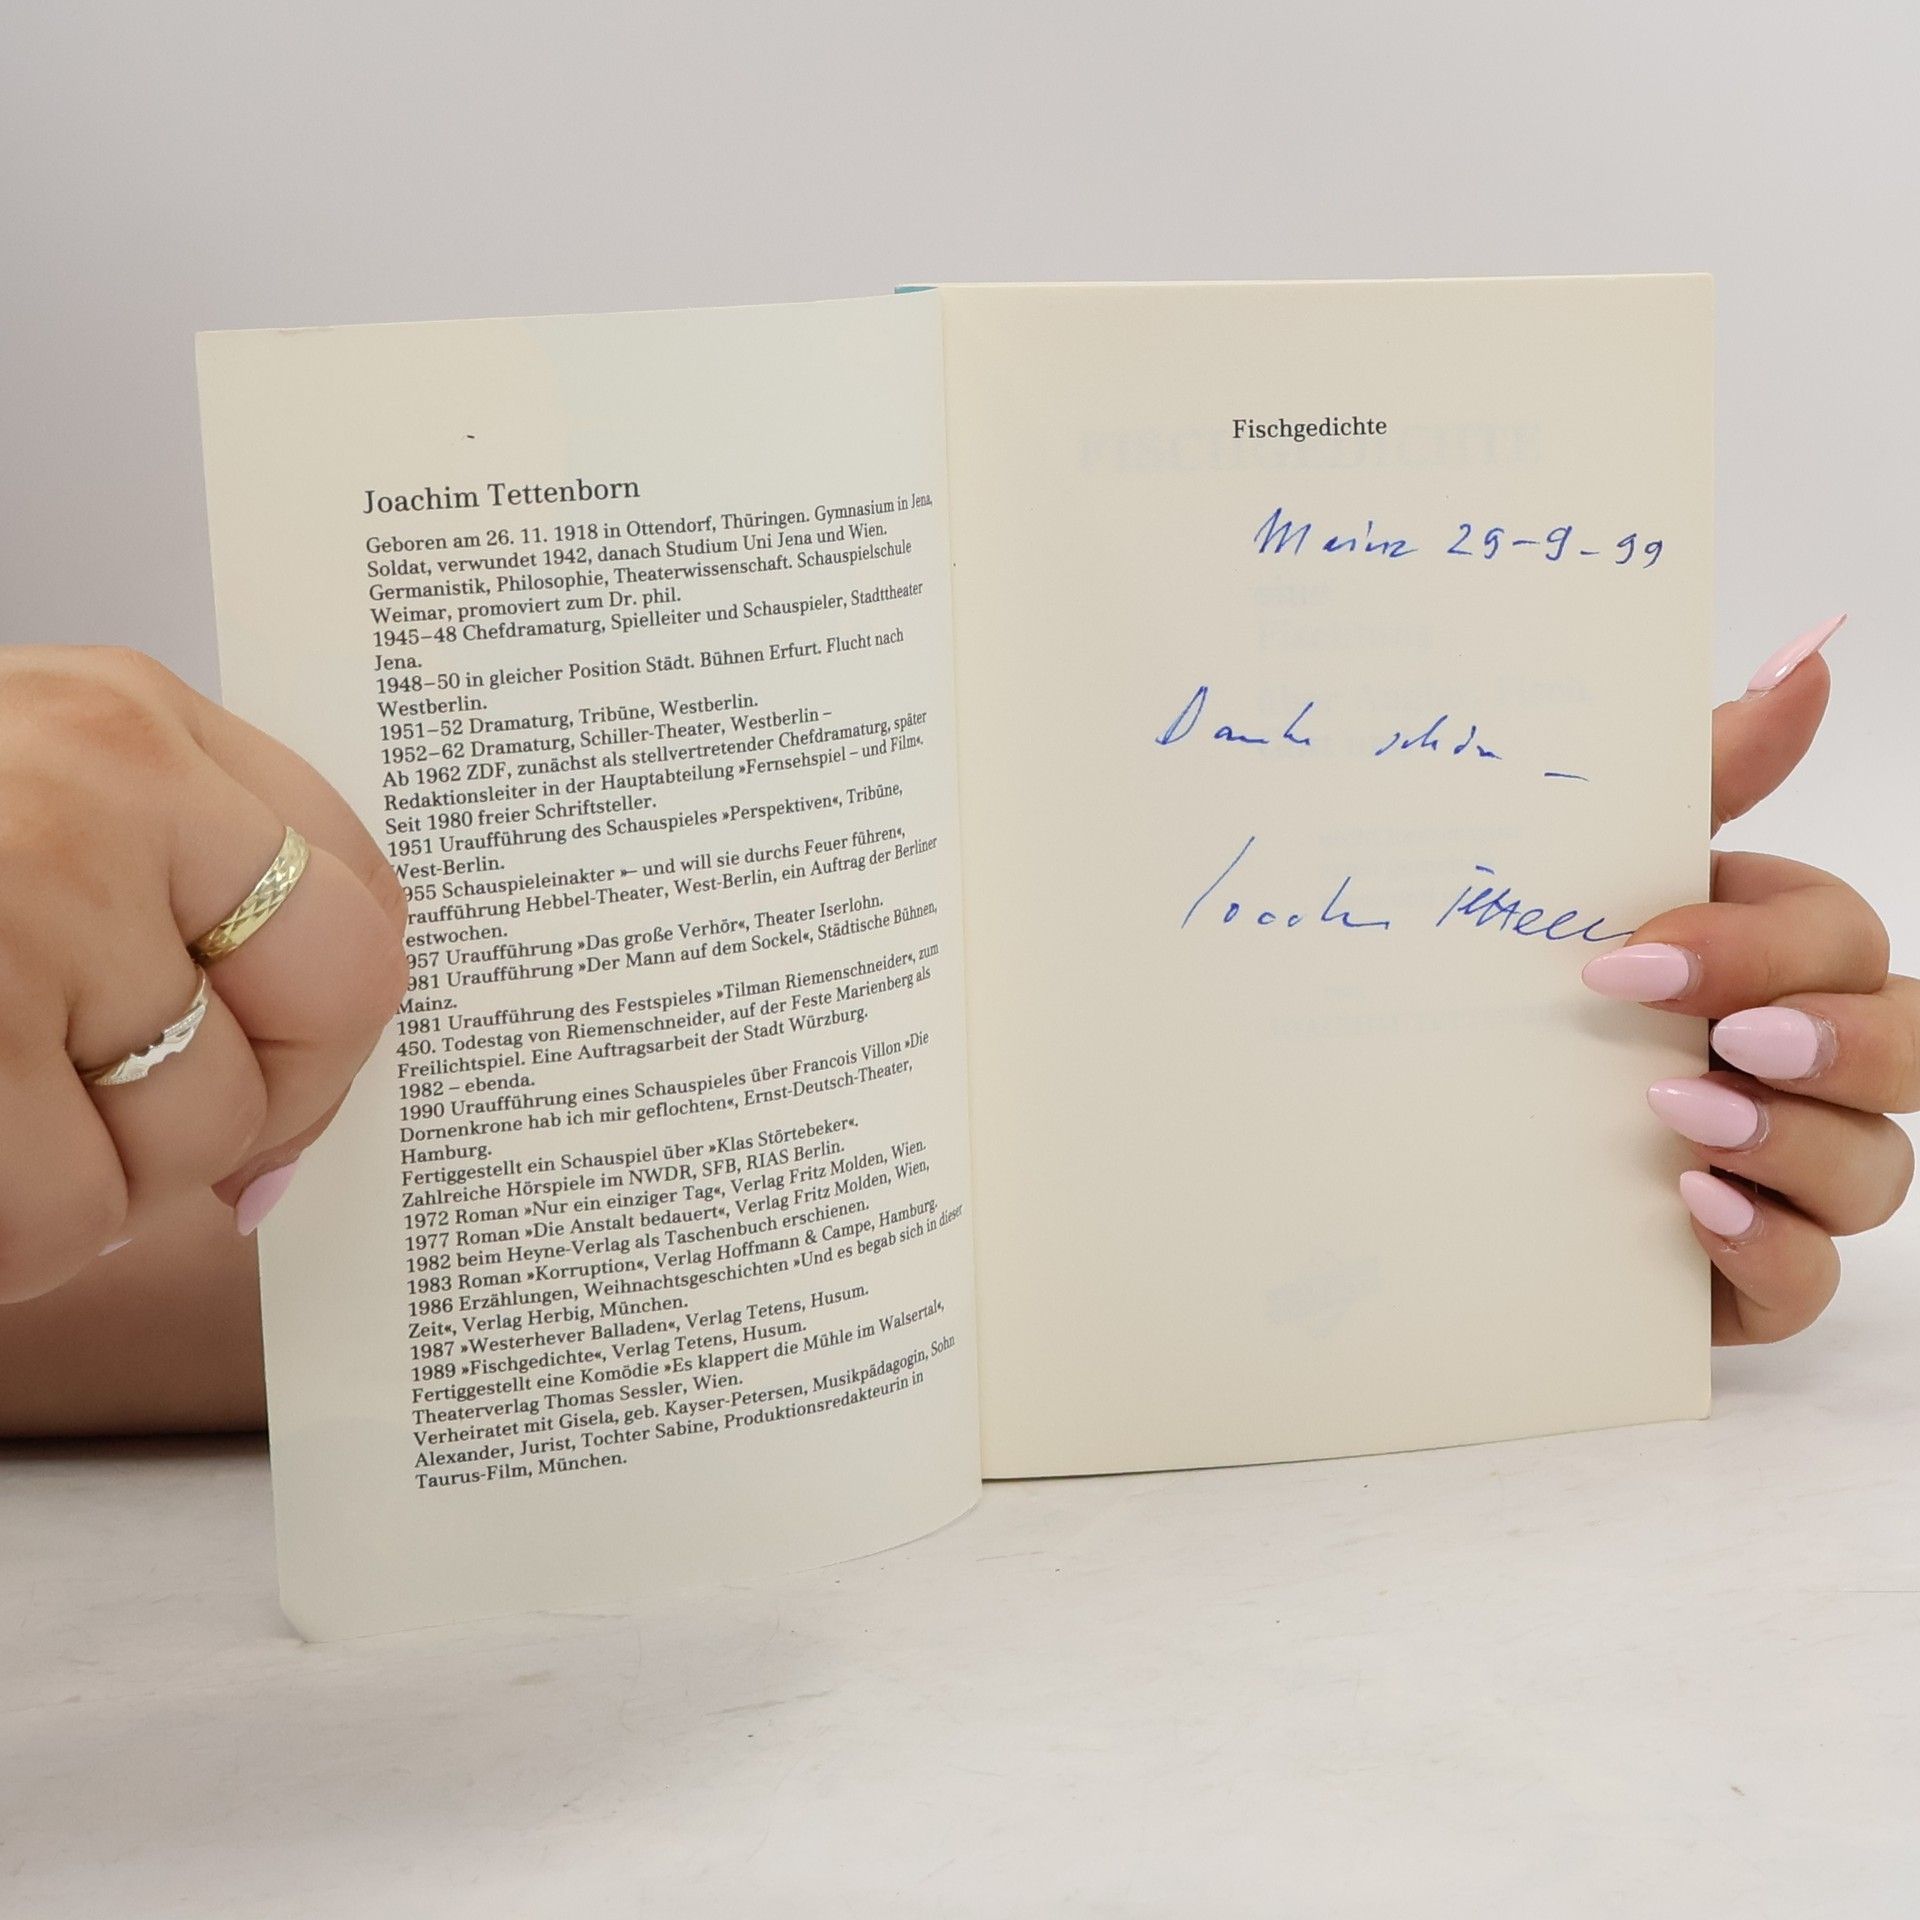 Joachim Tettenborn
Geboren am 26. 11. 1918 in Ottendorf, Thüringen. Gymnasium in Jena,
Soldat, verwundet 1942, danach Studium Uni Jena und Wien.
Germanistik, Philosophie, Theaterwissenschaft. Schauspielschule
Weimar, promoviert zum Dr. phil.
1945–48 Chefdramaturg, Spielleiter und Schauspieler, Stadttheater
Jena.
1948–50 in gleicher Position Städt. Bühnen Erfurt. Flucht nach
Westberlin.
1951–52 Dramaturg, Tribüne, Westberlin.
1952–62 Dramaturg, Schiller-Theater, Westberlin –
Ab 1962 ZDF, zunächst als stellvertretender Chefdramaturg, später
Redaktionsleiter in der Hauptabteilung »Fernsehspiel – und Film«.
Seit 1980 freier Schriftsteller.
1951 Uraufführung des Schauspieles »Perspektiven«, Tribüne,
West-Berlin.
955 Schauspieleinakter »– und will sie durchs Feuer führen«,
raufführung Hebbel-Theater, West-Berlin, ein Auftrag der Berliner
estwochen.
957 Uraufführung »Das große Verhör«, Theater Iserlohn.
981 Uraufführung »Der Mann auf dem Sockel«, Städtische Bühnen,
Mainz.
1981 Uraufführung des Festspieles »Tilman Riemenschneider«, zum
450. Todestag von Riemenschneider, auf der Feste Marienberg als
Freilichtspiel. Eine Auftragsarbeit der Stadt Würzburg.
1982 – ebenda.
1990 Uraufführung eines Schauspieles über Francois Villon »Die
Dornenkrone hab ich mir geflochten«, Ernst-Deutsch-Theater,
Hamburg.
Fertiggestellt ein Schauspiel über »Klas Störtebeker«.
Zahlreiche Hörspiele im NWDR, SFB, RIAS Berlin.
1972 Roman »Nur ein einziger Tag«, Verlag Fritz Molden, Wien.
1977 Roman »Die Anstalt bedauert«, Verlag Fritz Molden, Wien,
1982 beim Heyne-Verlag als Taschenbuch erschienen.
1983 Roman »Korruption«, Verlag Hoffmann & Campe, Hamburg.
1986 Erzählungen, Weihnachtsgeschichten »Und es begab sich in dieser
Zeit«, Verlag Herbig, München.
1987 »Westerhever Balladen«, Verlag Tetens, Husum.
1989 »Fischgedichte«, Verlag Tetens, Husum.
Fertiggestellt eine Komödie »Es klappert die Mühle im Walsertal«,
Theaterverlag Thomas Sessler, Wien.
Verheiratet mit Gisela, geb. Kayser-Petersen, Musikpädagogin, Sohn
Alexander, Jurist, Tochter Sabine, Produktionsredakteurin in
Taurus-Film, München.
Fischgedichte
Mainz 29-9-99
Danke schön –
Joachim